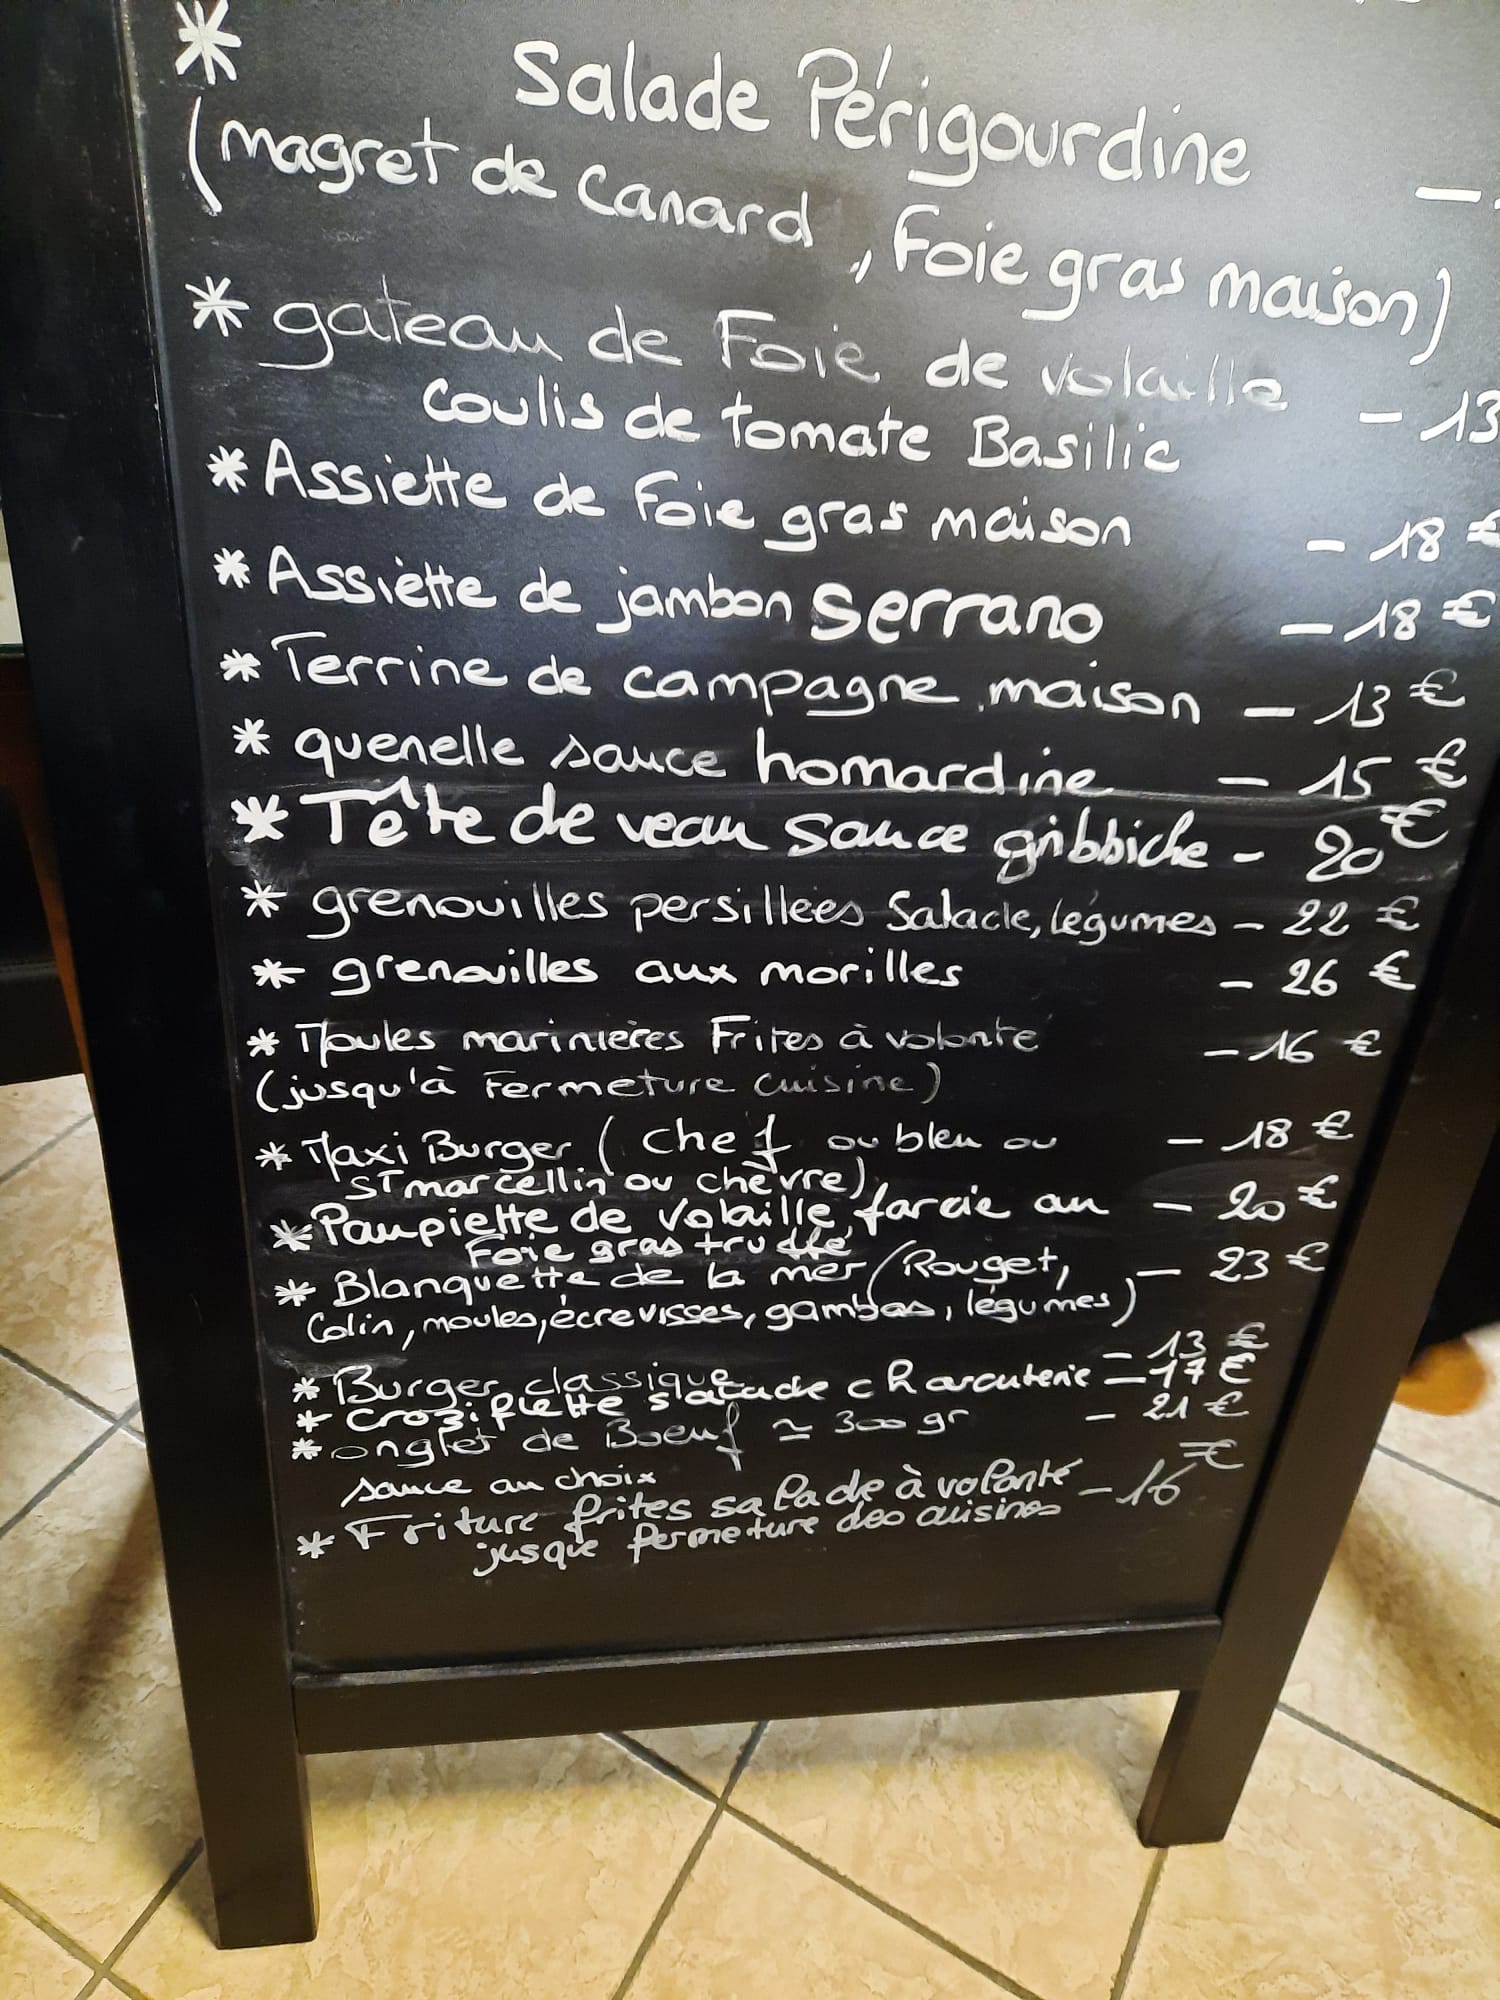 * Salade Périgourdine -
(magret de Canard, Foie gras maison)
* gateau de Foie de volaille - 13
coulis de tomate Basilic
* Assiette de Foie gras maison - 18 €
* Assiette de jambon serrano - 18 €
* Terrine de campagne maison - 13 €
* quenelle sauce homardine - 15 €
* Tête de veau sauce gribbiche - 20 €
* grenouilles persillées Salade, légumes - 22 €
* grenouilles aux morilles - 26 €
* Moules marinières Frites à volonté - 16 €
(jusqu'à Fermeture cuisine)
* Maxi Burger (chef ou bleu ou - 18 €
St marcellin ou chèvre)
* Paupiette de Volaille farcie au - 20 €
Foie gras truffé
* Blanquette de la mer (Rouget, - 23 €
Colin, moules, écrevisses, gambas, légumes)
* Burger classique - 13 €
* croziflette salade charcuterie - 17 €
* onglet de Boeuf ≃ 300 gr - 21 €
sauce au choix
* Friture frites salade à volonté - 16 €
jusque fermeture des cuisines